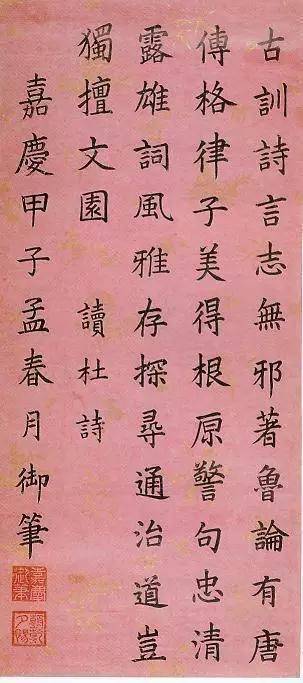 古訓詩言志無邪著魯論有唐
傅格律子美得根原警句忠清
露雄詞風雅存探尋通治道豈
獨擅文園　讀杜詩
嘉慶甲子孟春月御筆